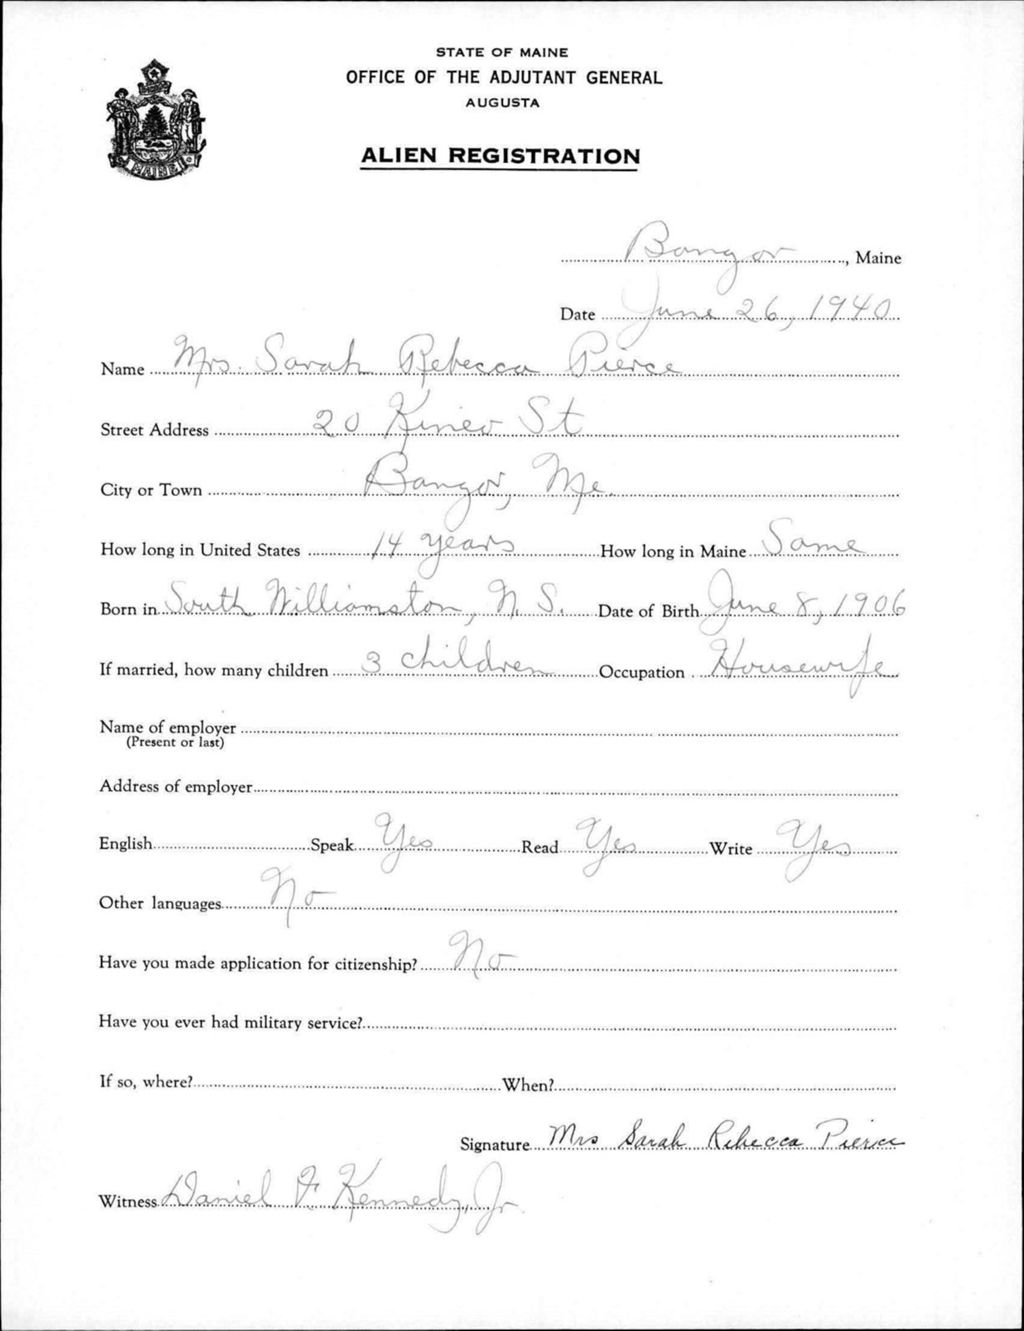 STATE OF MAINE
OFFICE OF THE ADJUTANT GENERAL
AUGUSTA
ALIEN REGISTRATION
Bangor, Maine
Date June 26, 1940
Name Mrs. Sarah Rebecca Pierce
Street Address 20 Kineo St
City or Town Bangor, Me.
How long in United States 14 years How long in Maine Same
Born in South Williamston, N. S. Date of Birth June 8, 1906
If married, how many children 3 children Occupation Housewife
Name of employer
(Present or last)
Address of employer
English Speak Yes Read Yes Write Yes
Other languages No
Have you made application for citizenship? No
Have you ever had military service?
If so, where? When?
Signature Mrs Sarah Rebecca Pierce
Witness Daniel F. Kennedy, Jr
MAINE